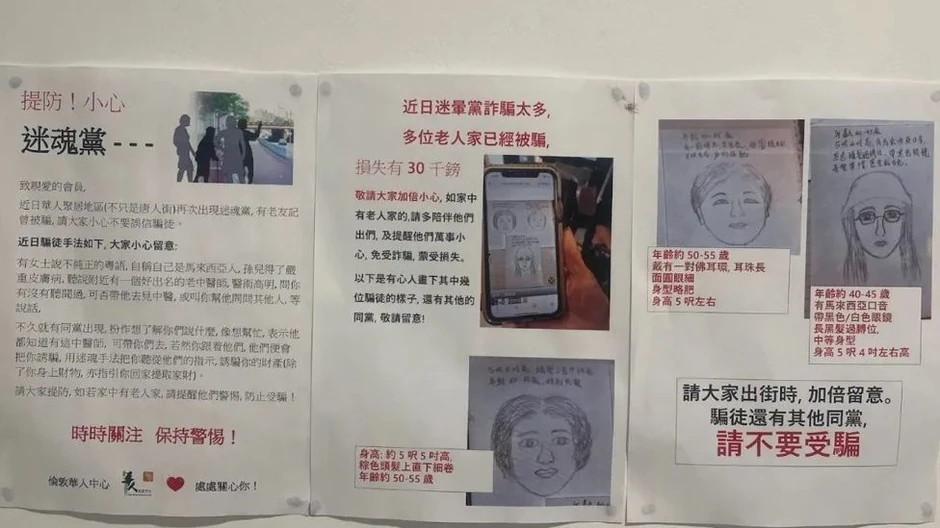 提防！小心
迷魂黨 - - -
致親愛的會員,
近日華人聚居地區(不只是唐人街)再次出現迷魂黨, 有老友記
曾被騙, 請大家小心不要誤信騙徒。
近日騙徒手法如下, 大家小心留意:
有女士說不純正的粵語, 自稱自己是馬來西亞人, 孫兒得了嚴
重皮膚病, 聽說附近有一個好出名的老中醫師, 醫術高明, 問你
有沒有聽聞過, 可否帶他去見中醫, 或叫你幫他問問其他人, 等
說話,
不久就有同黨出現, 扮作想了解你們說什麼, 像想幫忙, 表示他
都知道有這中醫師, 可帶你們去, 若然你跟着他們, 他們便會
把你誘騙, 用迷魂手法把你聽從他們的指示, 誘騙你的財產(除
了你身上財物, 亦指引你回家提取家財)。
請大家提防, 如若家中有老人家, 請提醒他們警惕, 防止受騙！
時時關注 保持警惕！
倫敦華人中心
處處關心你！
近日迷暈黨詐騙太多,
多位老人家已經被騙,
損失有 30 千鎊
敬請大家加倍小心, 如家中
有老人家的, 請多陪伴他們
出們, 及提醒他們萬事小
心, 免受詐騙, 蒙受損失。
以下是有心人畫下其中幾
位騙徒的樣子, 還有其他的
同黨, 敬請留意!
身高: 約 5 呎 5 吋高,
棕色頭髮上直下細卷
年齡約 50-55 歲
年齡約 50-55 歲
戴有一對佛耳環, 耳珠長
面圓眼細
身型略肥
身高 5 呎左右
年齡約 40-45 歲
有馬來西亞口音
帶黑色/白色眼鏡
長黑髮過膊位,
中等身型
身高 5 呎 4 吋左右高
請大家出街時, 加倍留意。
騙徒還有其他同黨,
請不要受騙